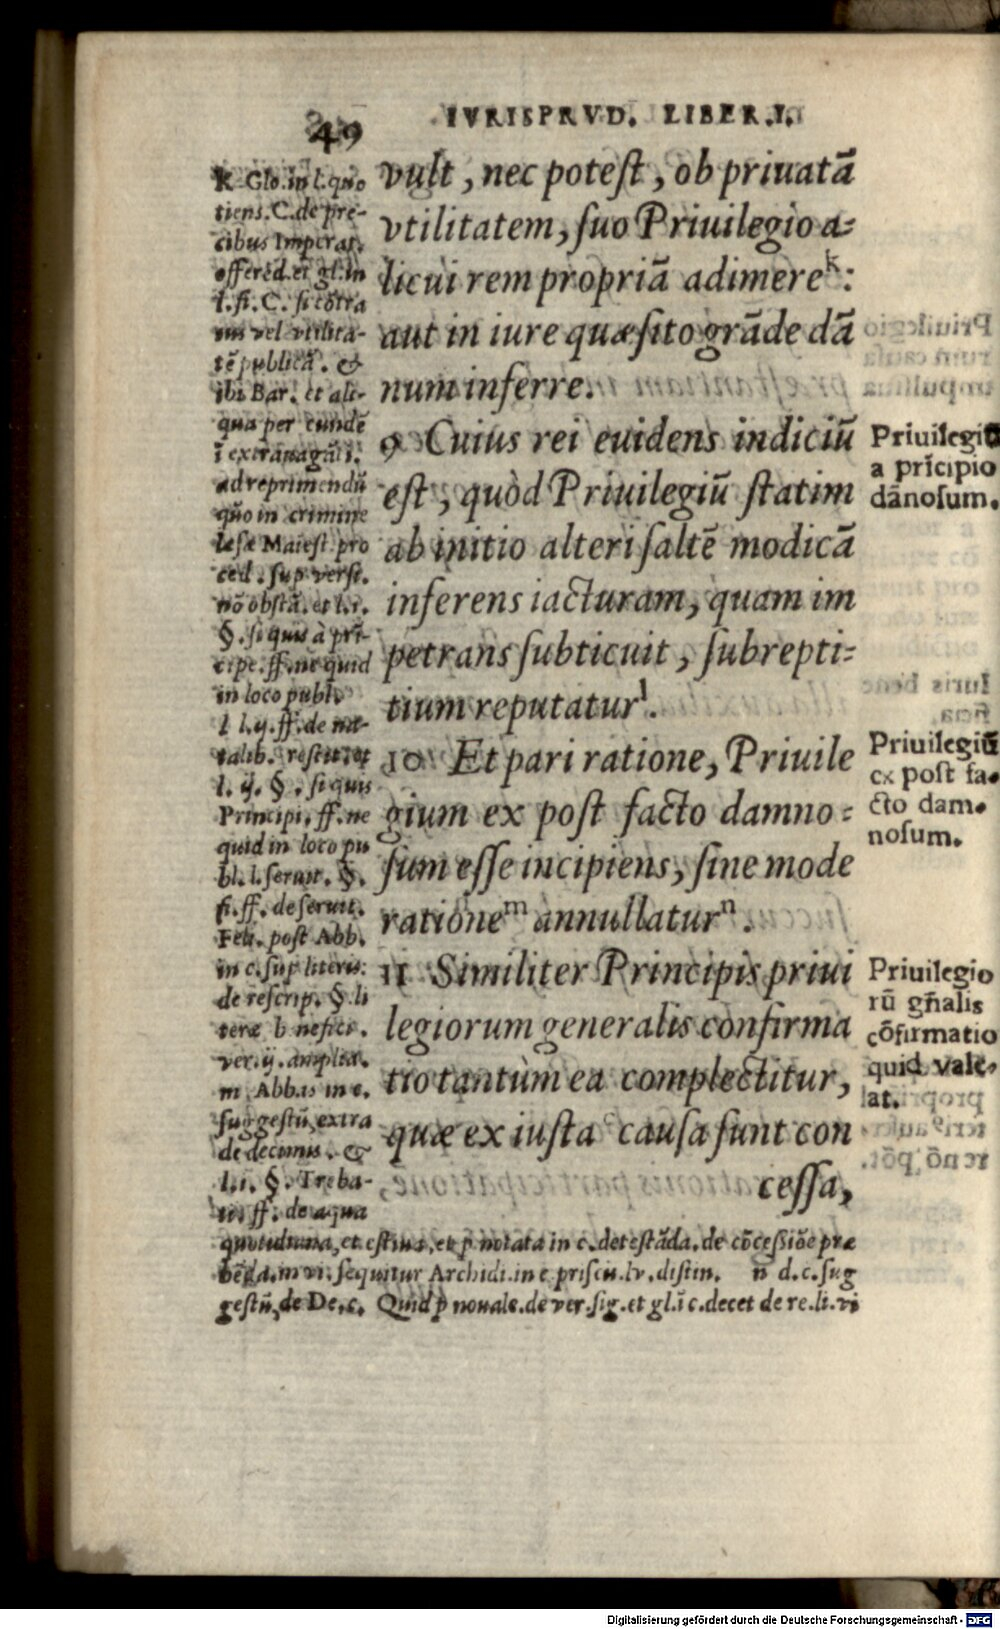 49
IVRISPRVD. LIBER. I.
vult, nec potest, ob priuatā
vtilitatem, suo Priuilegio a-
licui rem propriā adimere k:
aut in iure quæsito grāde dā
num inferre.
9 Cuius rei euidens indiciū
est, quòd Priuilegiū statim
ab initio alteri saltē modicā
inferens iacturam, quam im
petrans subticuit, subrepti-
tium reputatur l.
10 Et pari ratione, Priuile
gium ex post facto damno-
sum esse incipiens, sine mode
ratione m annullatur n.
11 Similiter Principis priui
legiorum generalis confirma
tio tantùm ea complectitur,
quæ ex iusta causa sunt con
cessa,
k Glo. in l. quo
tiens. C. de pre-
cibus Imperat.
offerēd. et gl. in
l. fi. C. si cōtra
ius vel vtilita-
tē publicā. &
ibi Bar. et ali-
qua per eundē
ī extrauagāti.
ad reprimendū
quo in crimine
lesæ Maiest. pro
ced. sup verst.
nō obstā. et l. 1.
§. si quis à prī-
cipe. ff. ne quid
in loco publ.
l l. ij. ff. de na-
talib. restit. et
l. ij. §. si quis
Principi. ff. ne
quid in loco pu
bl. l. seruit. §.
fi. ff. de seruit.
Feli. post Abb.
in c. sup literis.
de rescrip. §. li
teræ b nefici.
ver. ij. amplia.
m Abbas in c.
suggestū, extra
de decimis. &
l. i. §. Treba-
ff. de aqua
quotidiana, et estiua, et p notata in c. detestāda. de cōcessiōe præ
bēda. in vi. sequitur Archidi. in c priscis. lv. distin. n d. c. sug
gestū, de De. c. Quid p nouale. de ver. sig. et gl. ī c. decet de re. li. vi
Priuilegiū
a prīcipio
dānosum.
Priuilegiū
ex post fa-
cto dam-
nosum.
Priuilegio
rū gñalis
cōfirmatio
quid vale-
at.
Digitalisierung gefördert durch die Deutsche Forschungsgemeinschaft - DFG